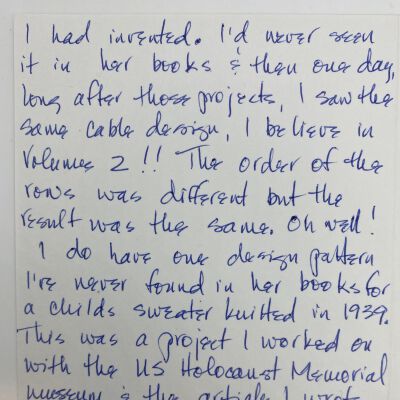 I had invented. I'd never seen
it in her books & then one day,
long after those projects, I saw the
same cable design, I believe in
Volumes 2!! The order of the
rows was different but the
result was the same. Oh well!
I do have one design pattern
I've never found in her books for
a childs sweater knitted in 1939.
This was a project I worked on
with the US Holocaust Memorial
museum & the article I wrote